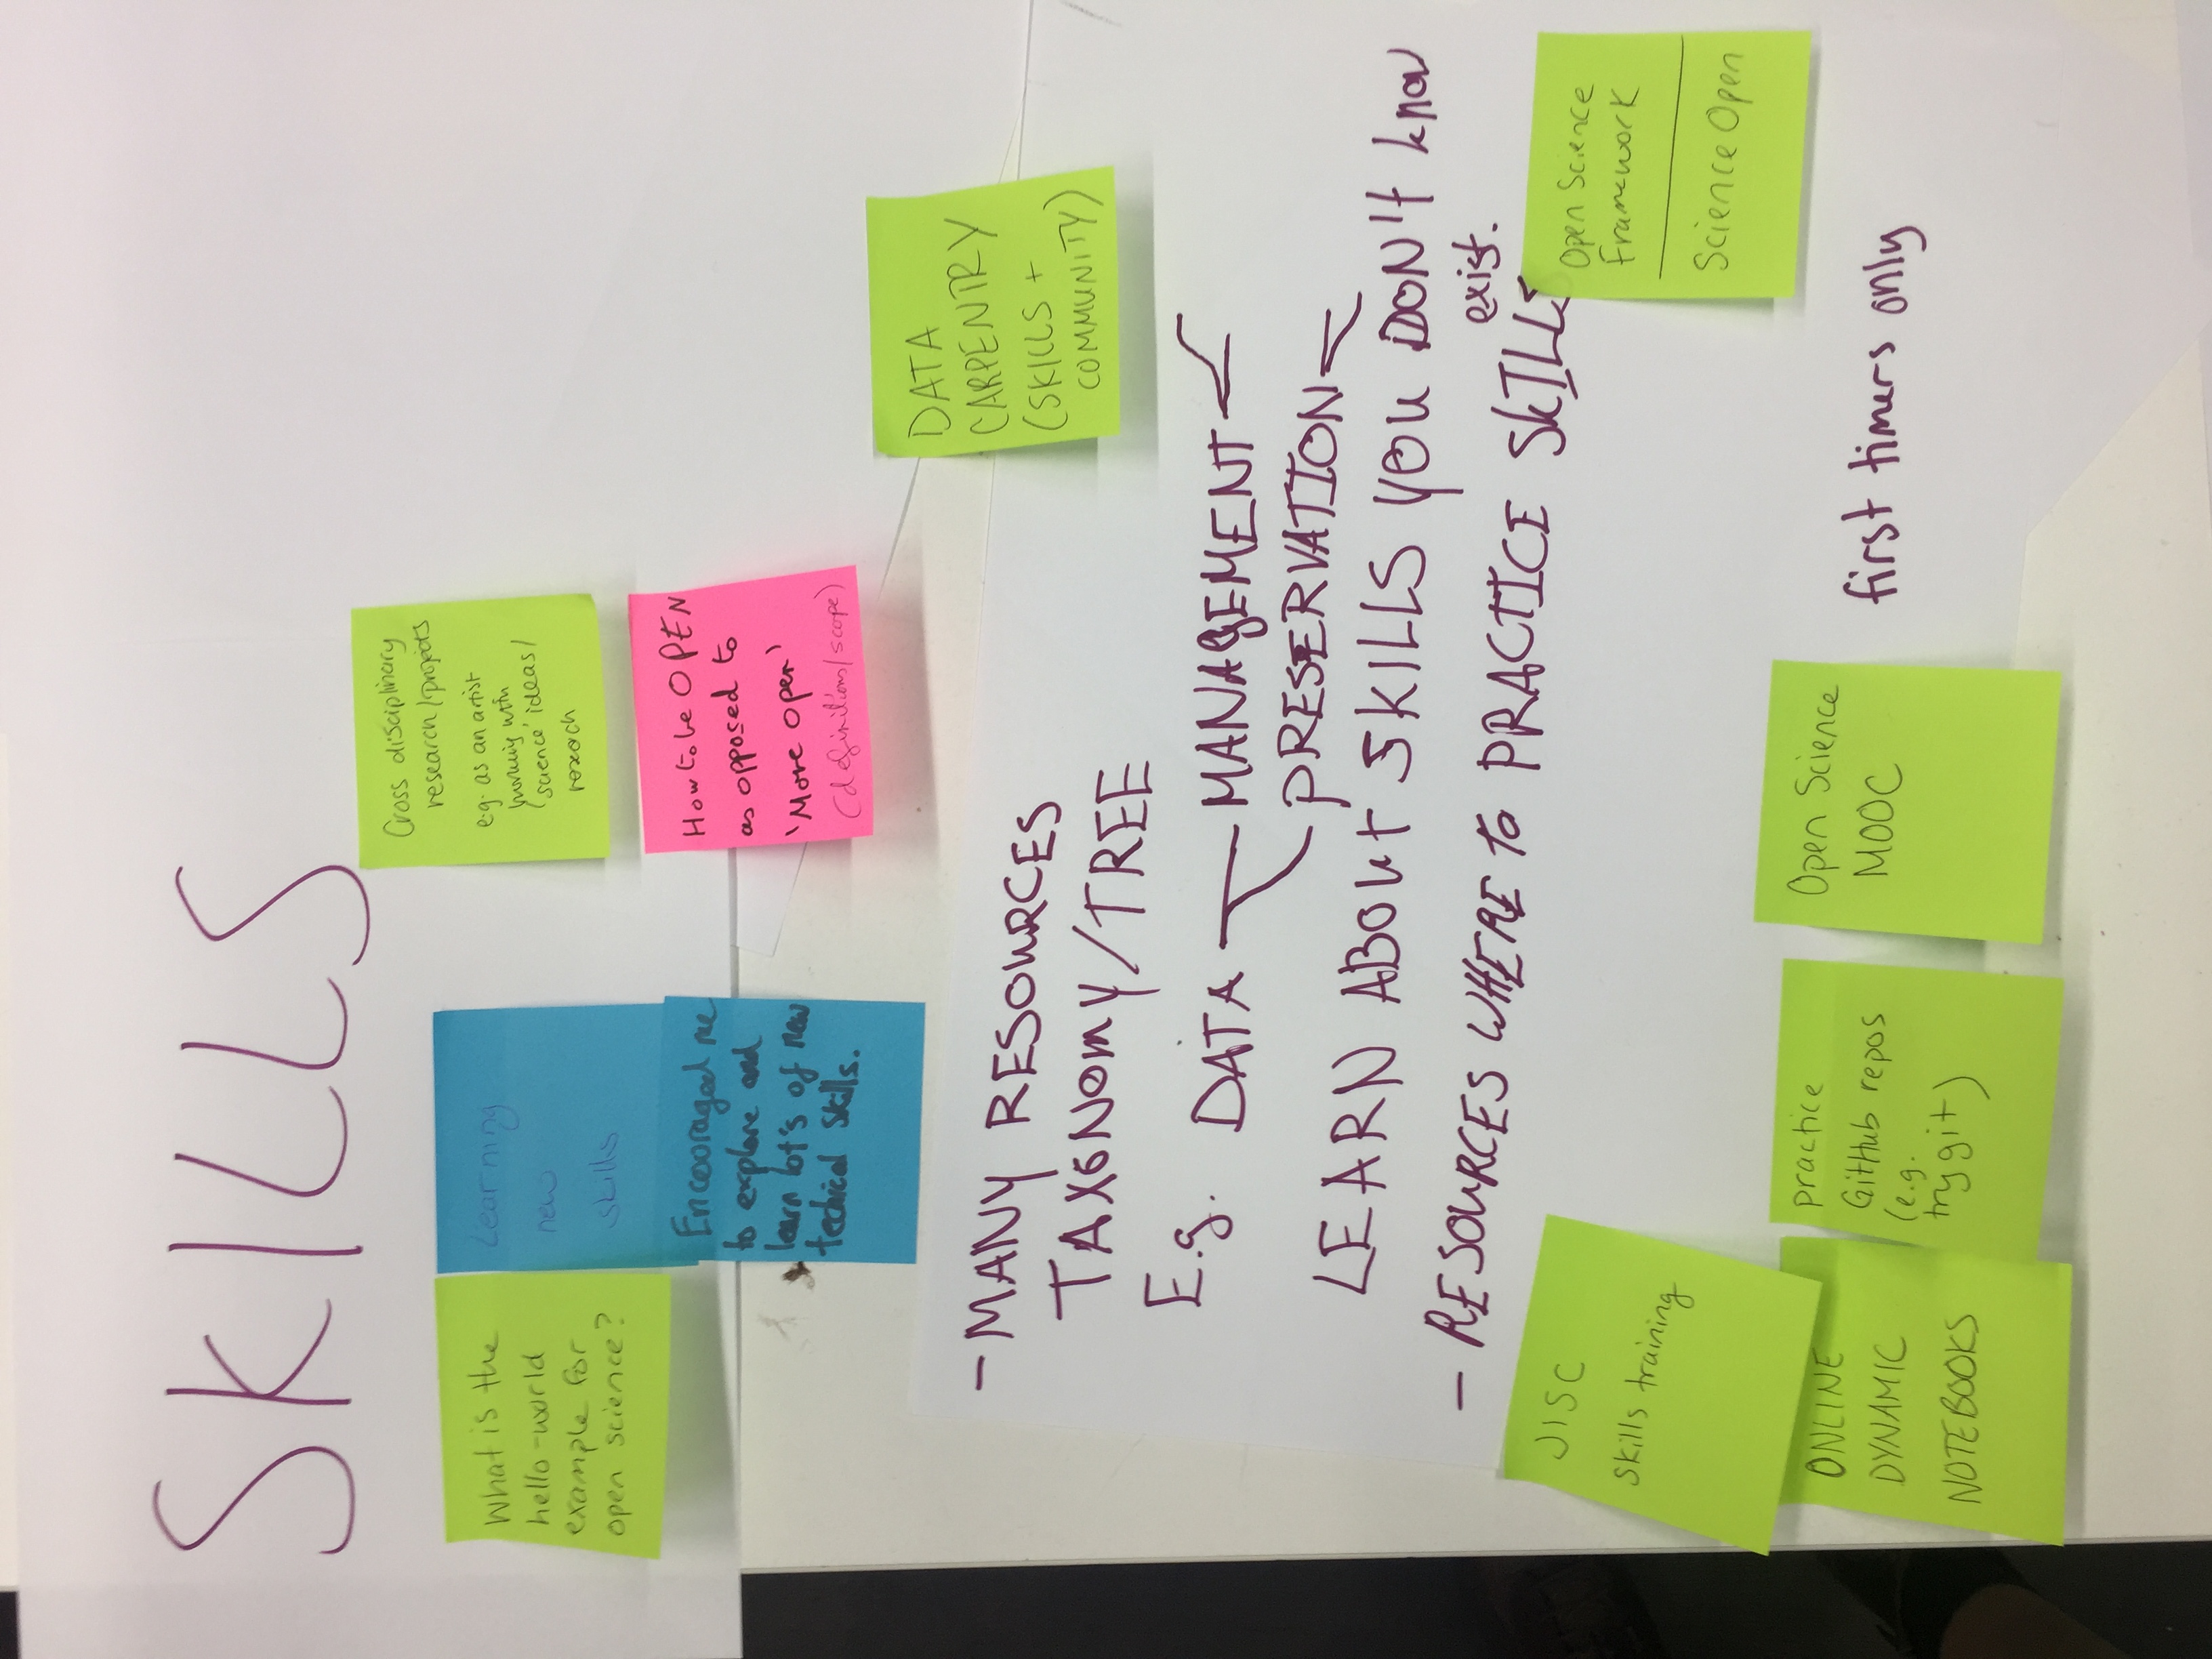 SKILLS
What is the
hello-world
example for
open science?
Learning
new
skills
Encouraged me
to explore and
learn lot's of new
techical skills.
Cross disciplinary
research/projects
e.g. as an artist
working with
'science' ideas/
research
How to be OPEN
as opposed to
'More open'
(definitions/scope)
DATA
CARPENTRY
(SKILLS +
COMMUNITY)
- MANY RESOURCES
TAXONOMY/TREE
E.g. DATA MANAGEMENT
PRESERVATION
LEARN ABOUT SKILLS YOU DON'T know
exist.
- RESOURCES WHERE to PRACTICE SKILLS
JISC
skills training
Open Science
Framework
Science Open
ONLINE
DYNAMIC
NOTEBOOKS
practice
GitHub repos
(e.g.
try git)
Open Science
MOOC
first timers only